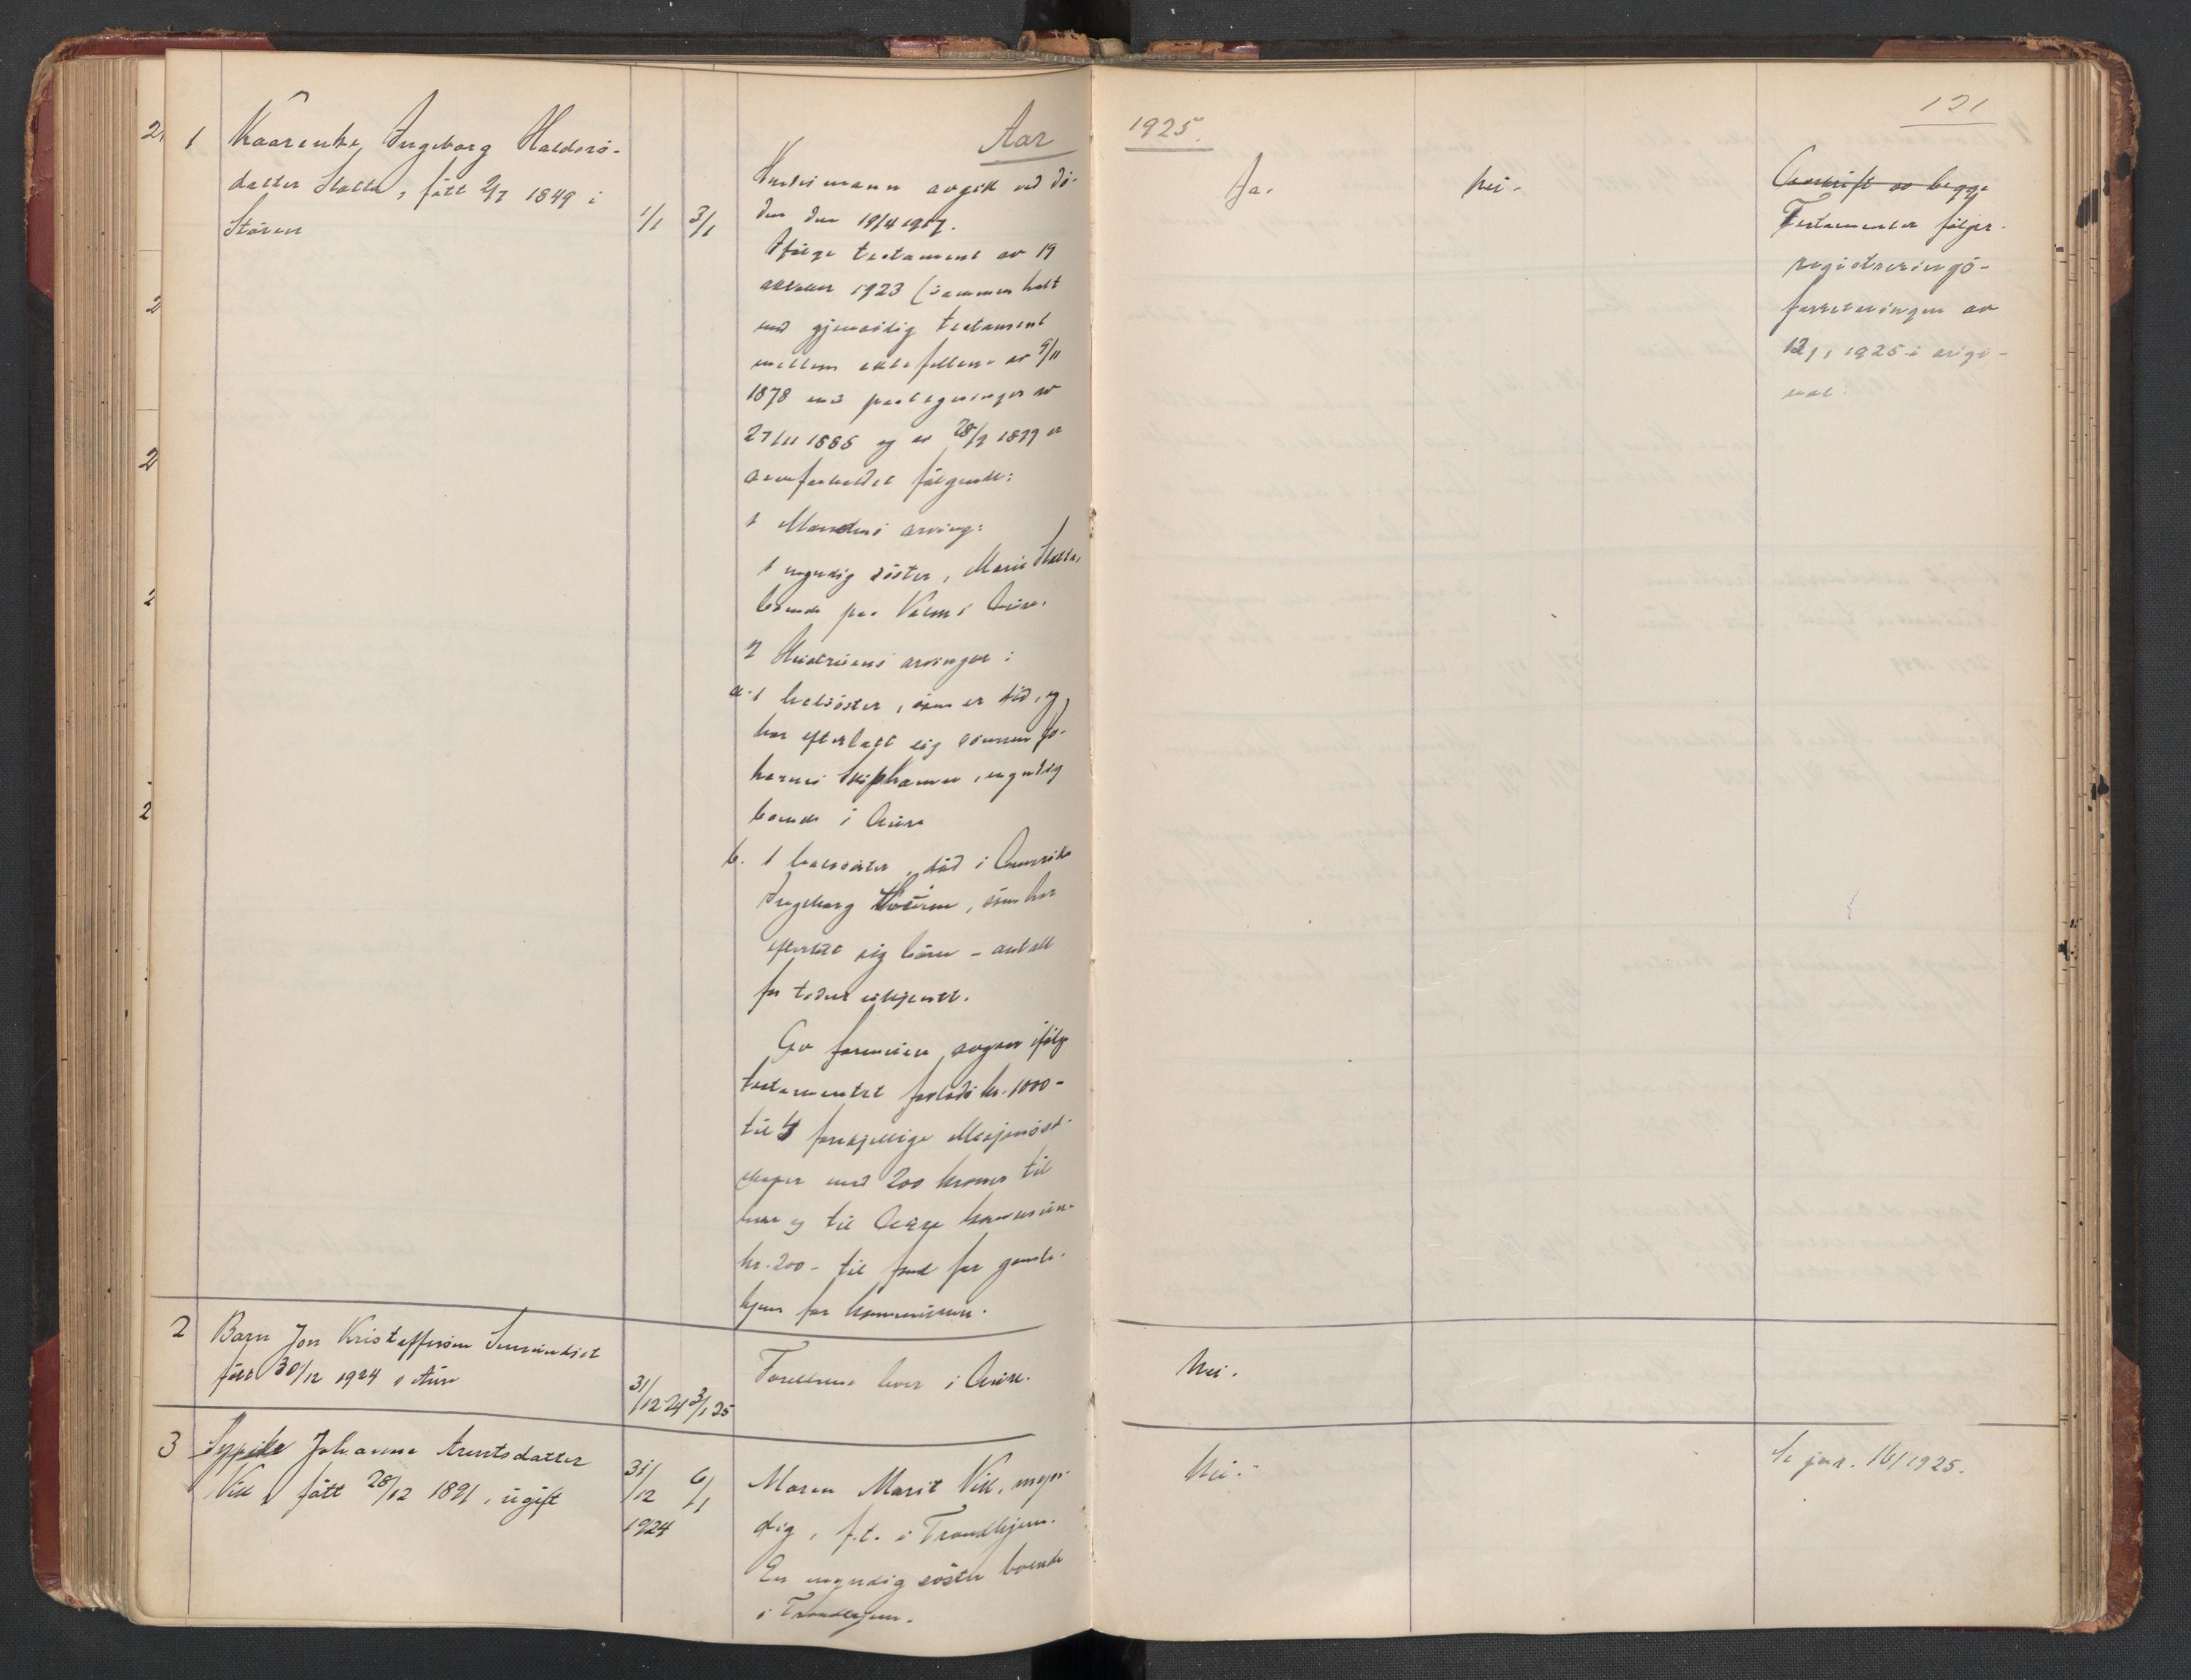 Aar
1925.
121
1
Kaarenke, Ingeborg Haldors-
datter Stolth, fött 2/7 1849 i
Stören
1/1 3/1
Husbimann avgik ved dö-
den den 19/4 1917.
Ifölge testament av 19
oktober 1923 (sammenholt
med gjensidig testament
mellem ektefellene av 9/11
1878 med paategninger av
27/11 1885 og av 28/9 1899 er
arveforholdet fölgende:
1 Mandens arving:
1 myndig söster, Marie
boende paa i Aure.
2 Hustruens arvinger:
a. 1 helsöster, som er död, og
har efterlatt sig sönnen Jo-
hannes Skiphamer, myndig
boende i Aure
b. 1 halvsöster, död i Amerika
Ingeborg, som har
efterlat sig börn - antall
for tiden ukjent.
Av formuen avgaar ifölge
testamentet forlods kr. 1000-
til 4 forskjellige Misjonssel-
skaper med 200 kroner til
hver og til Aure kommune
kr. 200- til fond for gamle-
hjem for kommunen.
Ja.
Nei.
Avskrift av begge
Testamenter fölger
registrerings-
forretningen av
12/1 1925 i origi-
nal.
2
Barn Jon Kristoffersen
född 30/12 1924 i Aure
31/12 24 3/1 25
Foreldrene lever i Aure.
Nei.
3
Sypike Johanna Arntsdatter
Vik, fött 28/12 1891, ugift
31/12 1924 6/1
Maren Marit Vik, myn-
dig, f.t. i Trondhjem.
En myndig söster boende
i Trondhjem.
Nei.
Se jour. 16/1925.
2
2
2
2
2